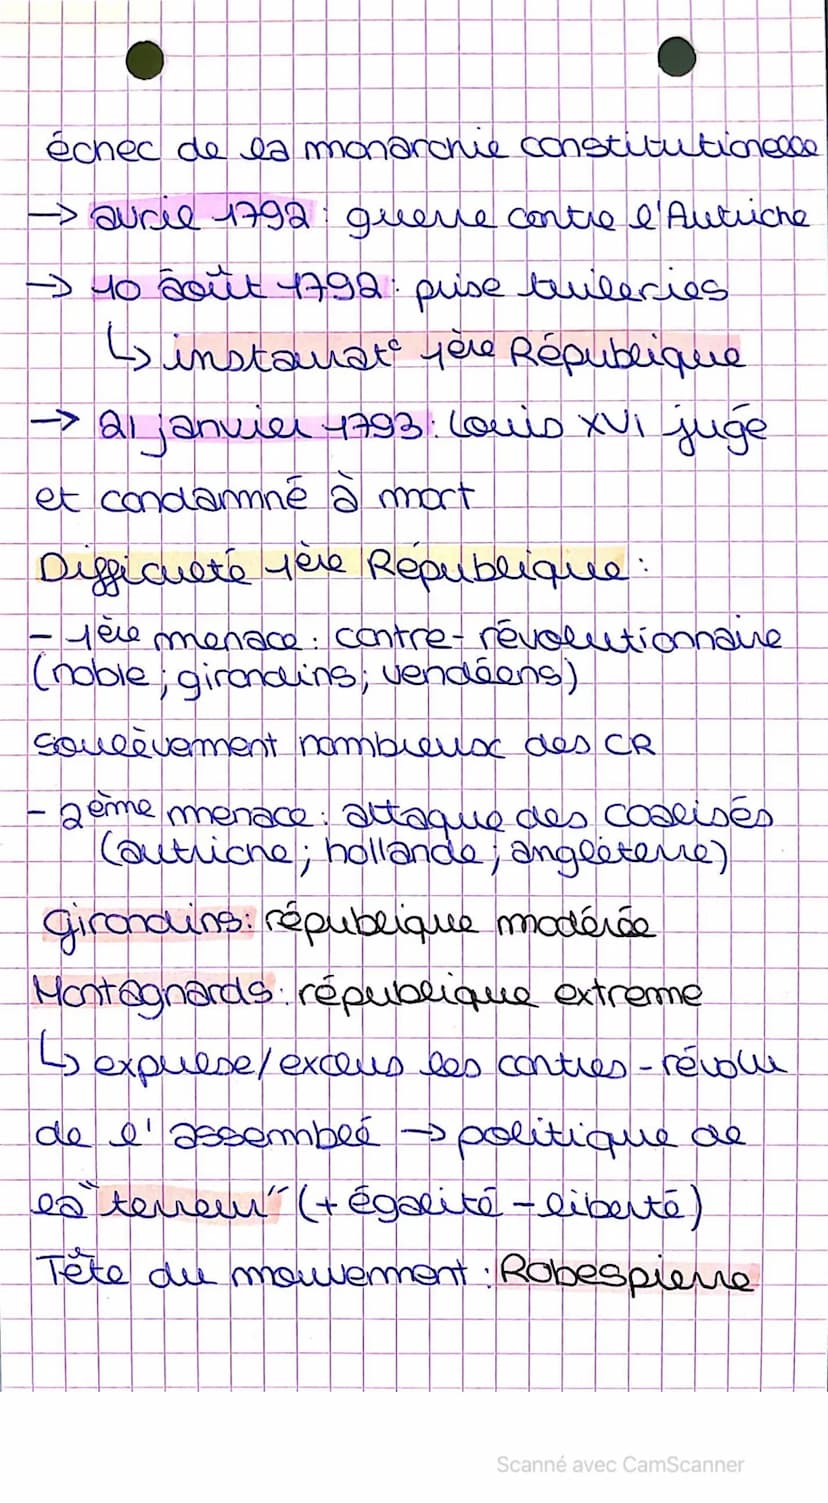 échec de la monarchie constitutionelle
→ avril 1792 : guerre contre l'Autriche
→ 10 août 1792 : prise tuileries
↳ instaurat° 1ère République
→ 21 janvier 1793 : Louis XVI jugé
et condamné à mort
Difficulté 1ère République :
- 1ère menace : contre-révolutionnaire
(noble ; girondins ; vendéens)
soulèvement nombreux des CR
- 2ème menace : attaque des coalisés
(autriche ; hollande ; angleterre)
Girondins : république modérée
Montagnards : république extreme
↳ expulse/exclus les contres-révolu
de l'assembleé → politique de
la "terreur" (+ égalité - liberté)
Tête du mouvement : Robespierre
Scanné avec CamScanner